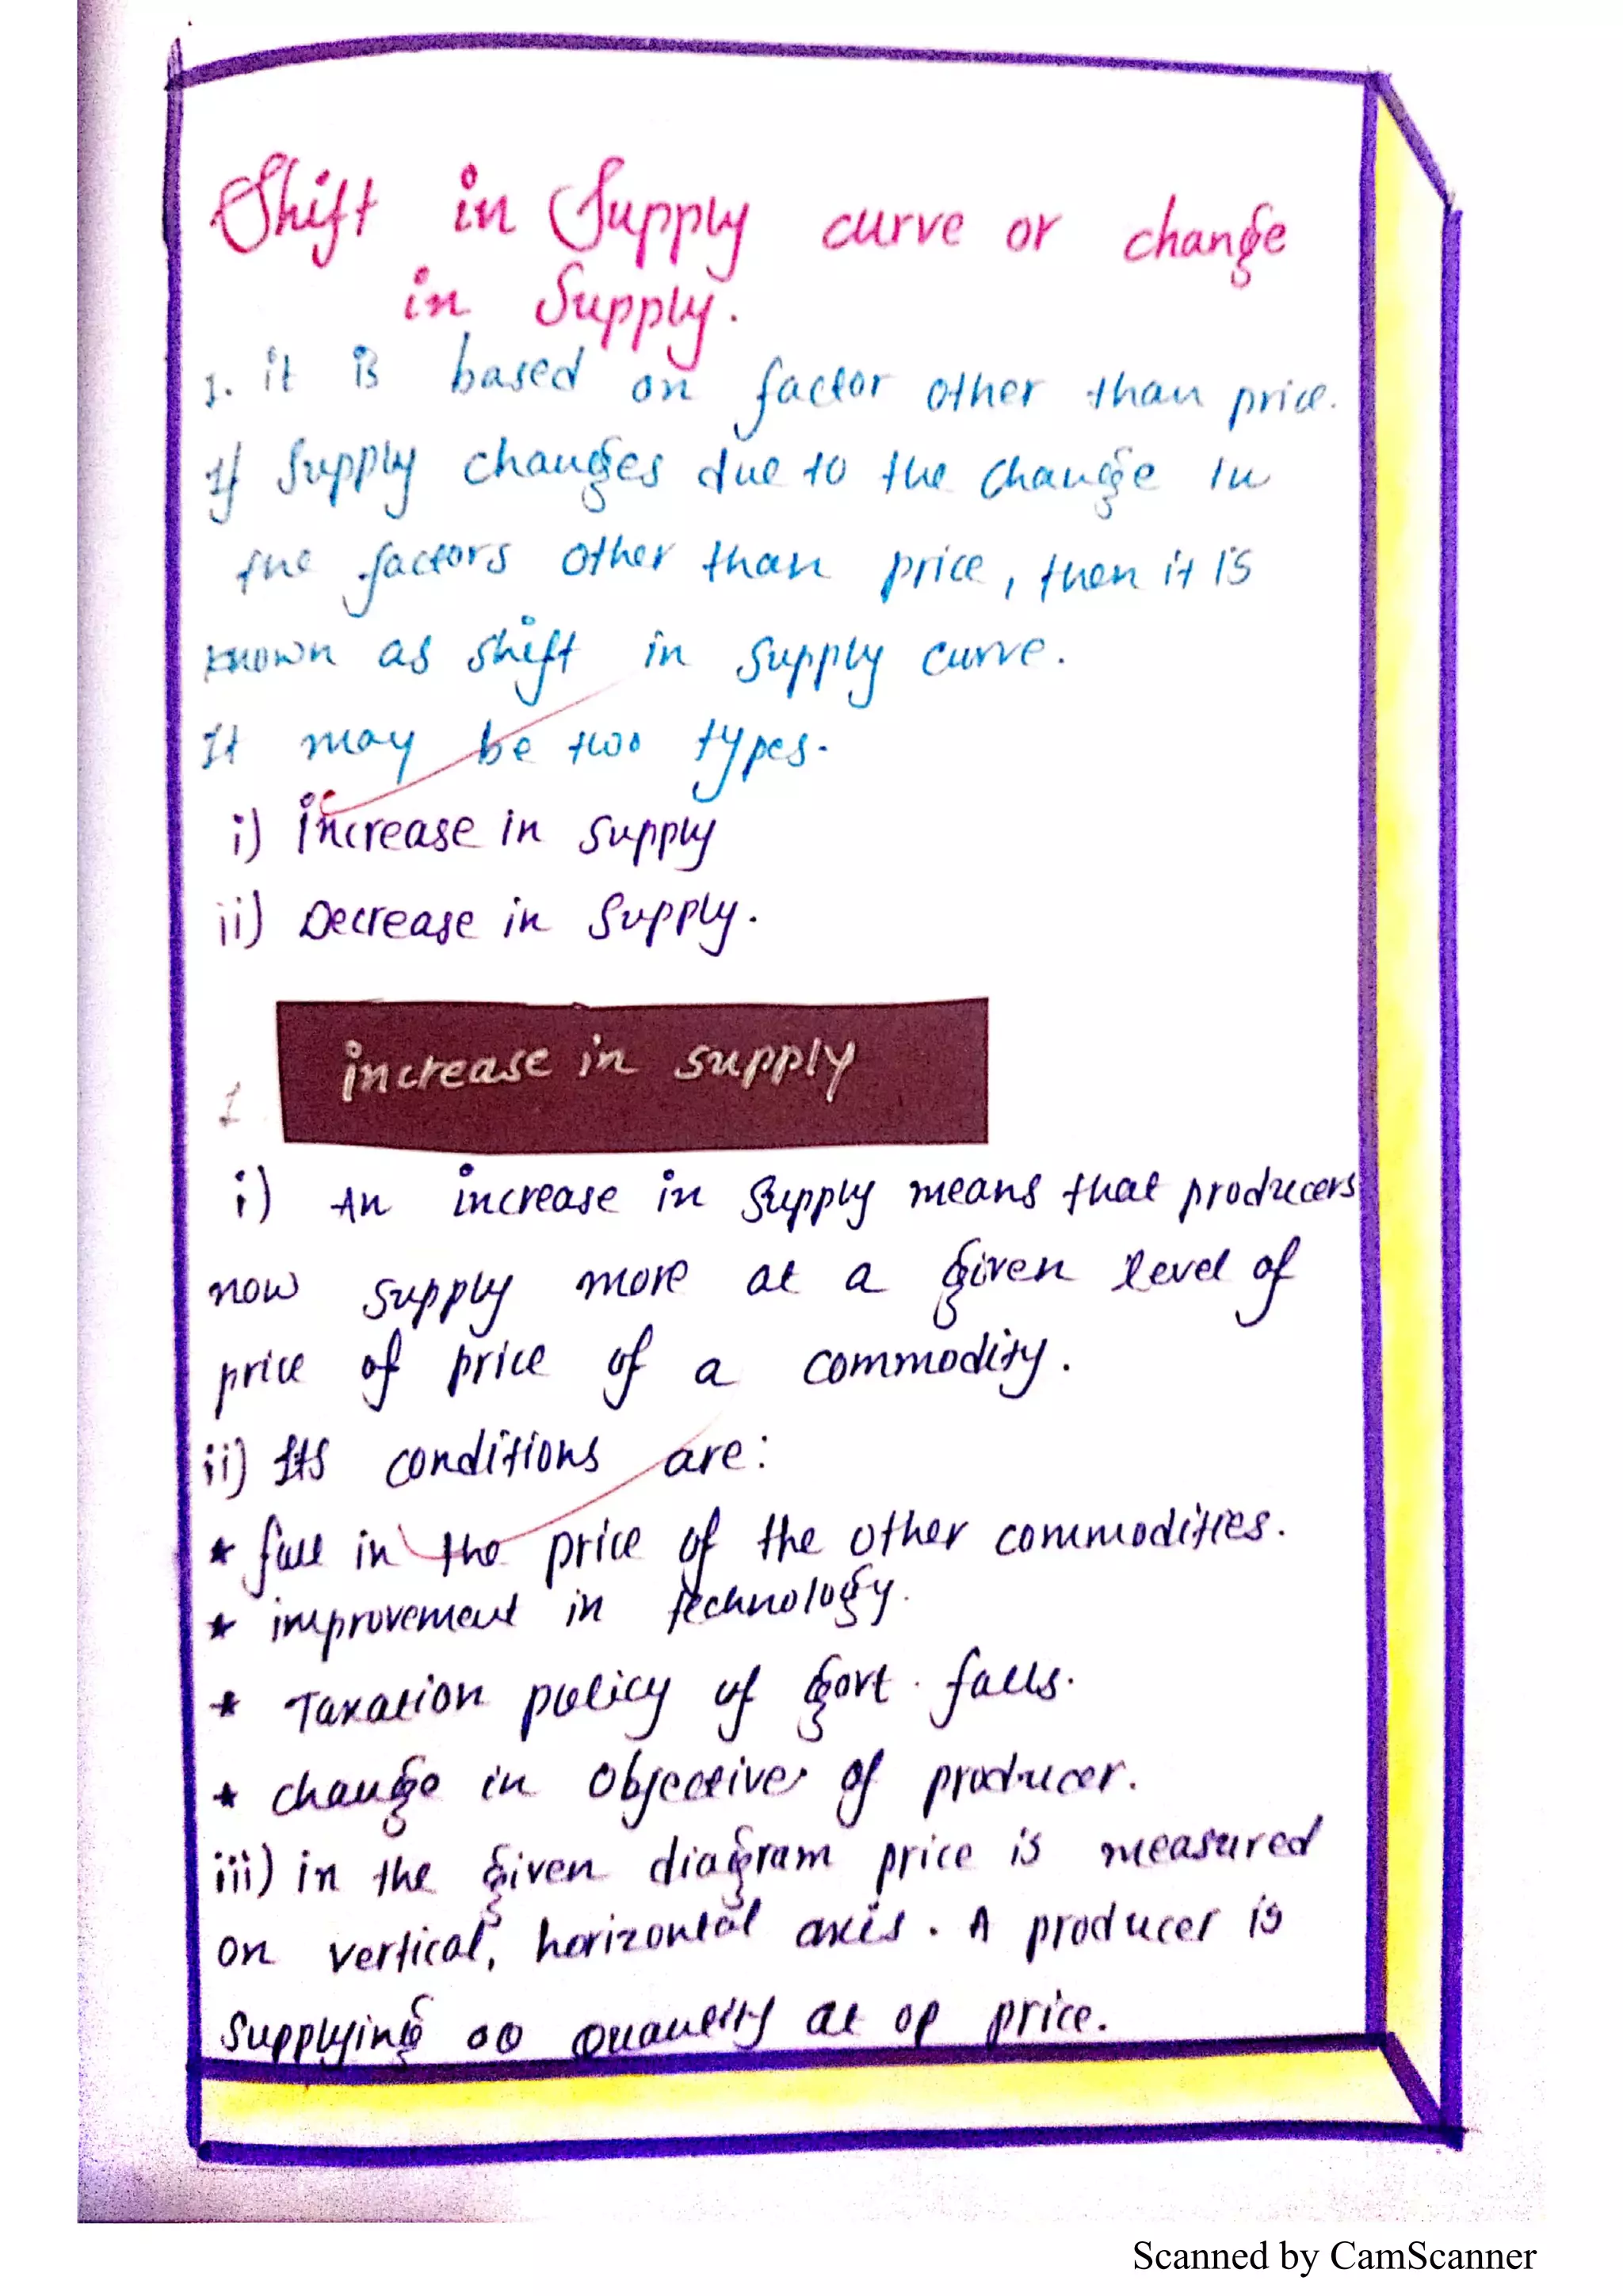 Shift in Supply curve or change
in Supply.
1. it is based on factor other than price.
If supply changes due to the change in
the factors other than price, then it is
known as shift in supply curve.
It may be two types.
i) increase in supply
ii) Decrease in supply.
1 increase in supply
i) An increase in supply means that producers
now supply more at a given level of
price of price of a commodity.
ii) Its conditions are:
* fall in the price of the other commodities.
* improvement in technology.
* Taxation policy of govt. falls.
* change in objective of producer.
iii) in the given diagram price is measured
on vertical, horizontal axis. A producer is
supplying oo quantity at op price.
Scanned by CamScanner